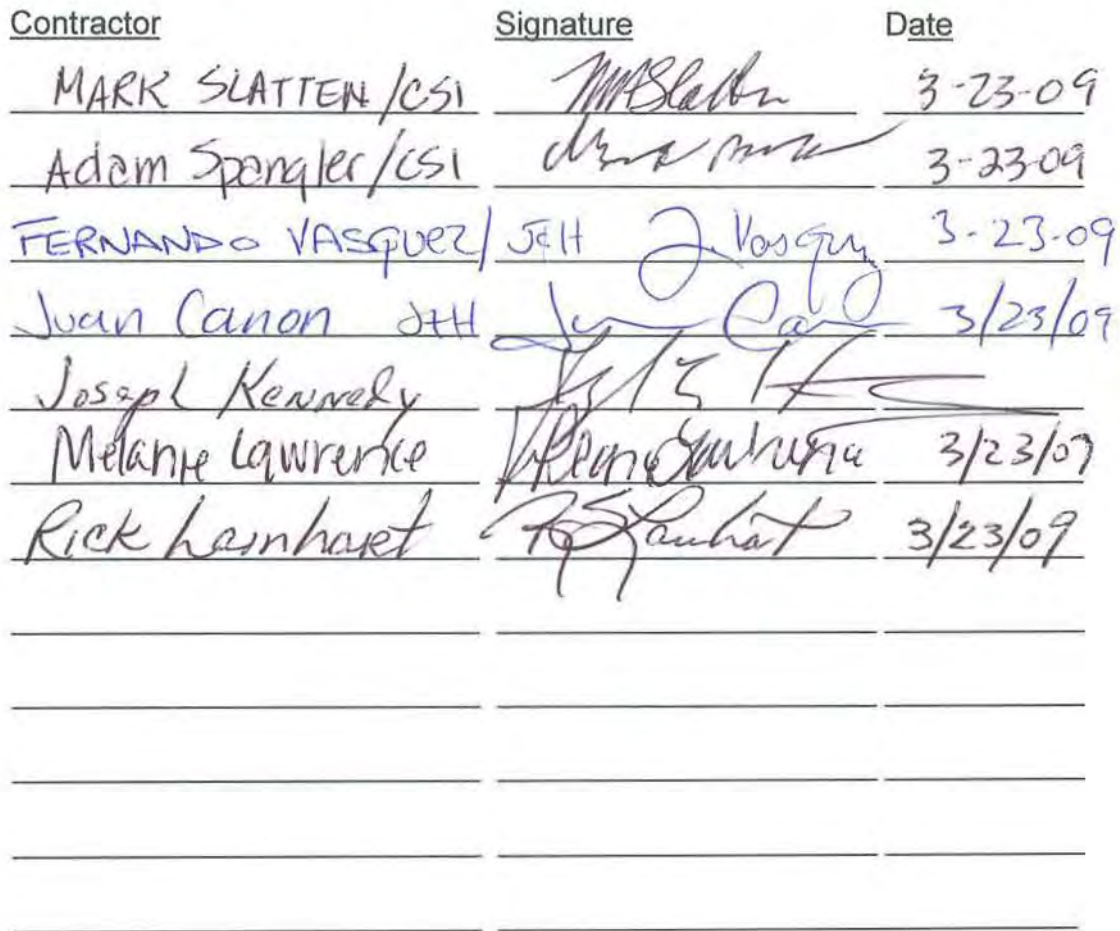 Contractor Signature Date
MARK SLATTEN/CSI MASlatten 3-23-09
Adam Spangler/CSI 3-23-09
FERNANDO VASQUEZ/ J&H J. Vasquez 3-23-09
Juan Canon J&H Juan Can 3/23/09
Joseph Kennedy
Melanie Lawrence Melanie Lawrence 3/23/09
Rick Lainhart 3/23/09